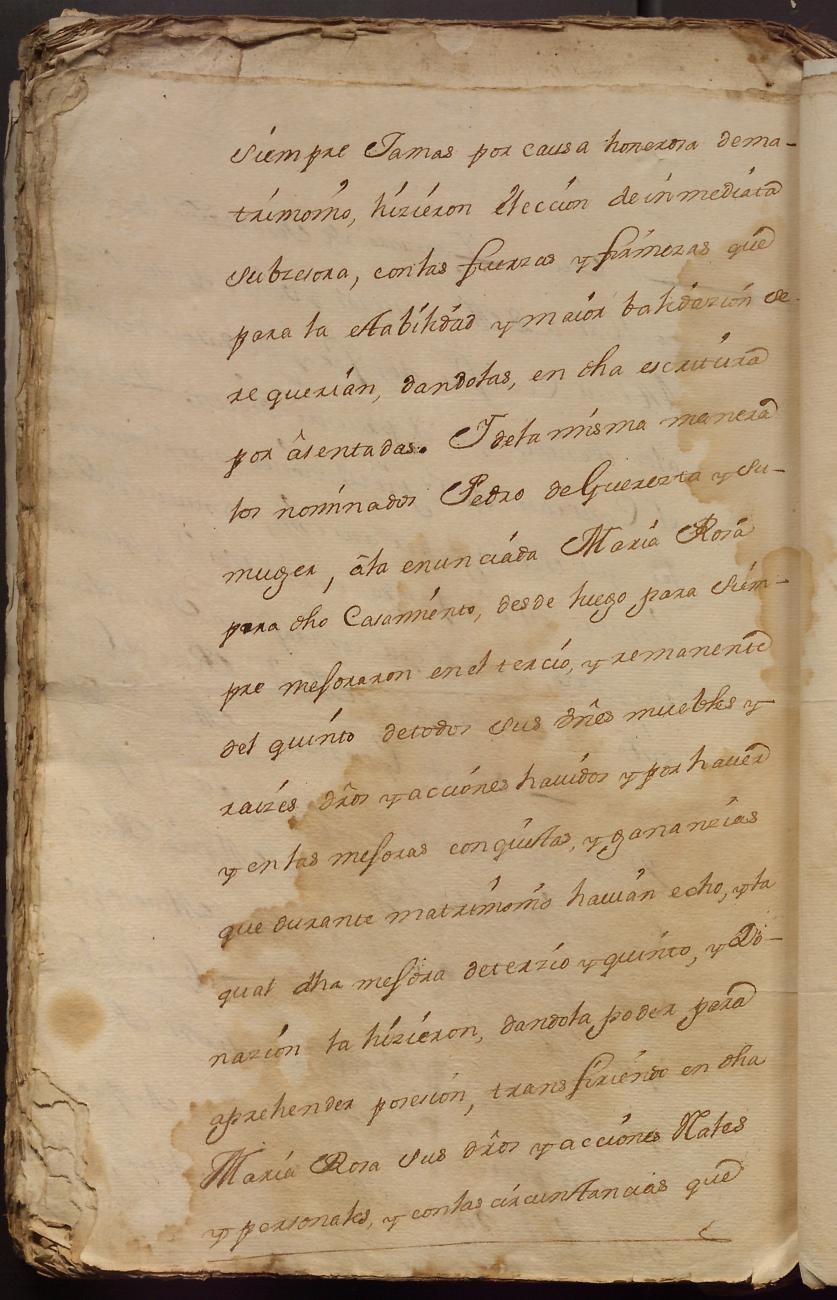 siempre Jamas por causa honerosa dema-
trimonio, hizieron élección deinmediata
subzesora, conlas fuerzas y firmezas que
para la estabilidad y maior balidazión se
requerian, dandolas, en dha escritura
por âsentadas. Y dela misma manera
los nominados Pedro de Guerezta y su-
muger, âla enunciada Maria Rosa
para dho Casamiento, desde luego para siem-
pre mesoraron enel tercio, y remanente
del quinto detodos sus vñes muebles y
raizes dr̃os y acciónes havidos y por haver
y enlas mesoras conquistas, y gananeias
que durante matrimonio havian echo, y la
qual dha mesora deterzio y quinto, y Do-
nazión la hizieron, dandola poder para
aprehender posesión, transfiriendo en dha
Maria Rosa sus dr̃os y acciónes Rales
y personales, y conlas circunstancias que